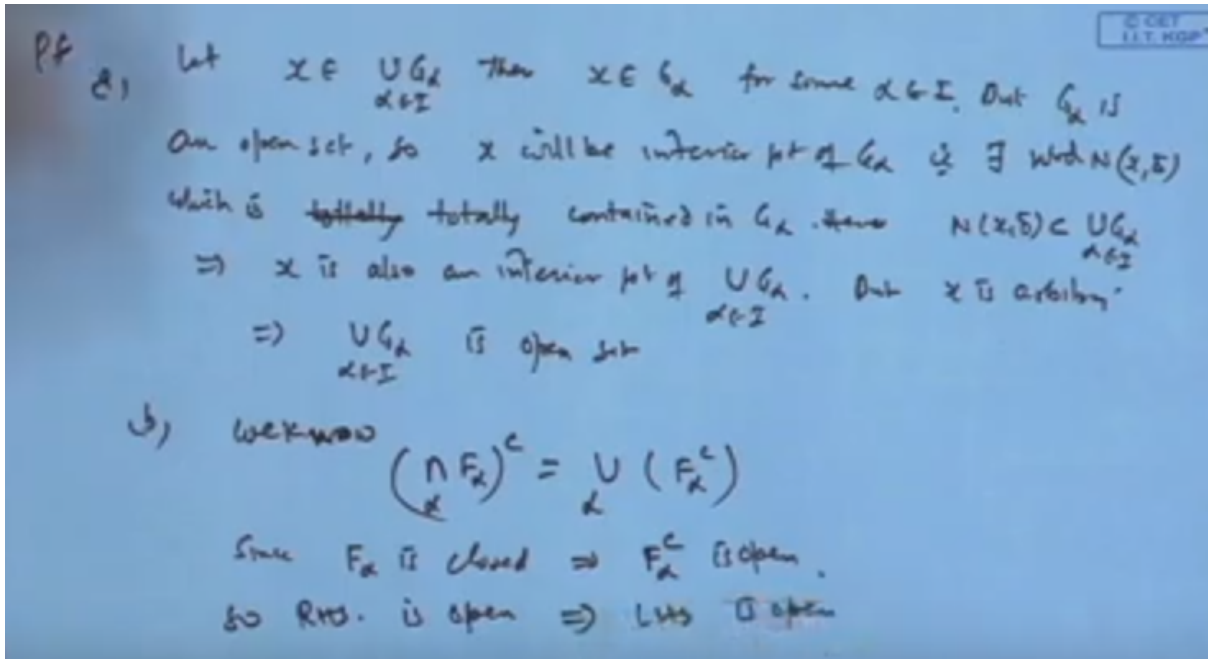 © CET
I.I.T. KGP
Pf a) Let x ∈ ∪Gα then x ∈ Gα for some α ∈ I. But Gα is
α∈I
an open set, so x will be interior pt of Gα ie ∃ nbd N(x,δ)
which is totally contained in Gα. N(x,δ) ⊂ ∪Gα
α∈I
⇒ x is also an interior pt of ∪Gα. But x is arbitrary.
α∈I
⇒ ∪Gα is open set
α∈I
b) we know
(∩ Fα)ᶜ = ∪ (Fαᶜ)
α α
Since Fα is closed ⇒ Fαᶜ is open.
so RHS. is open ⇒ LHS is open